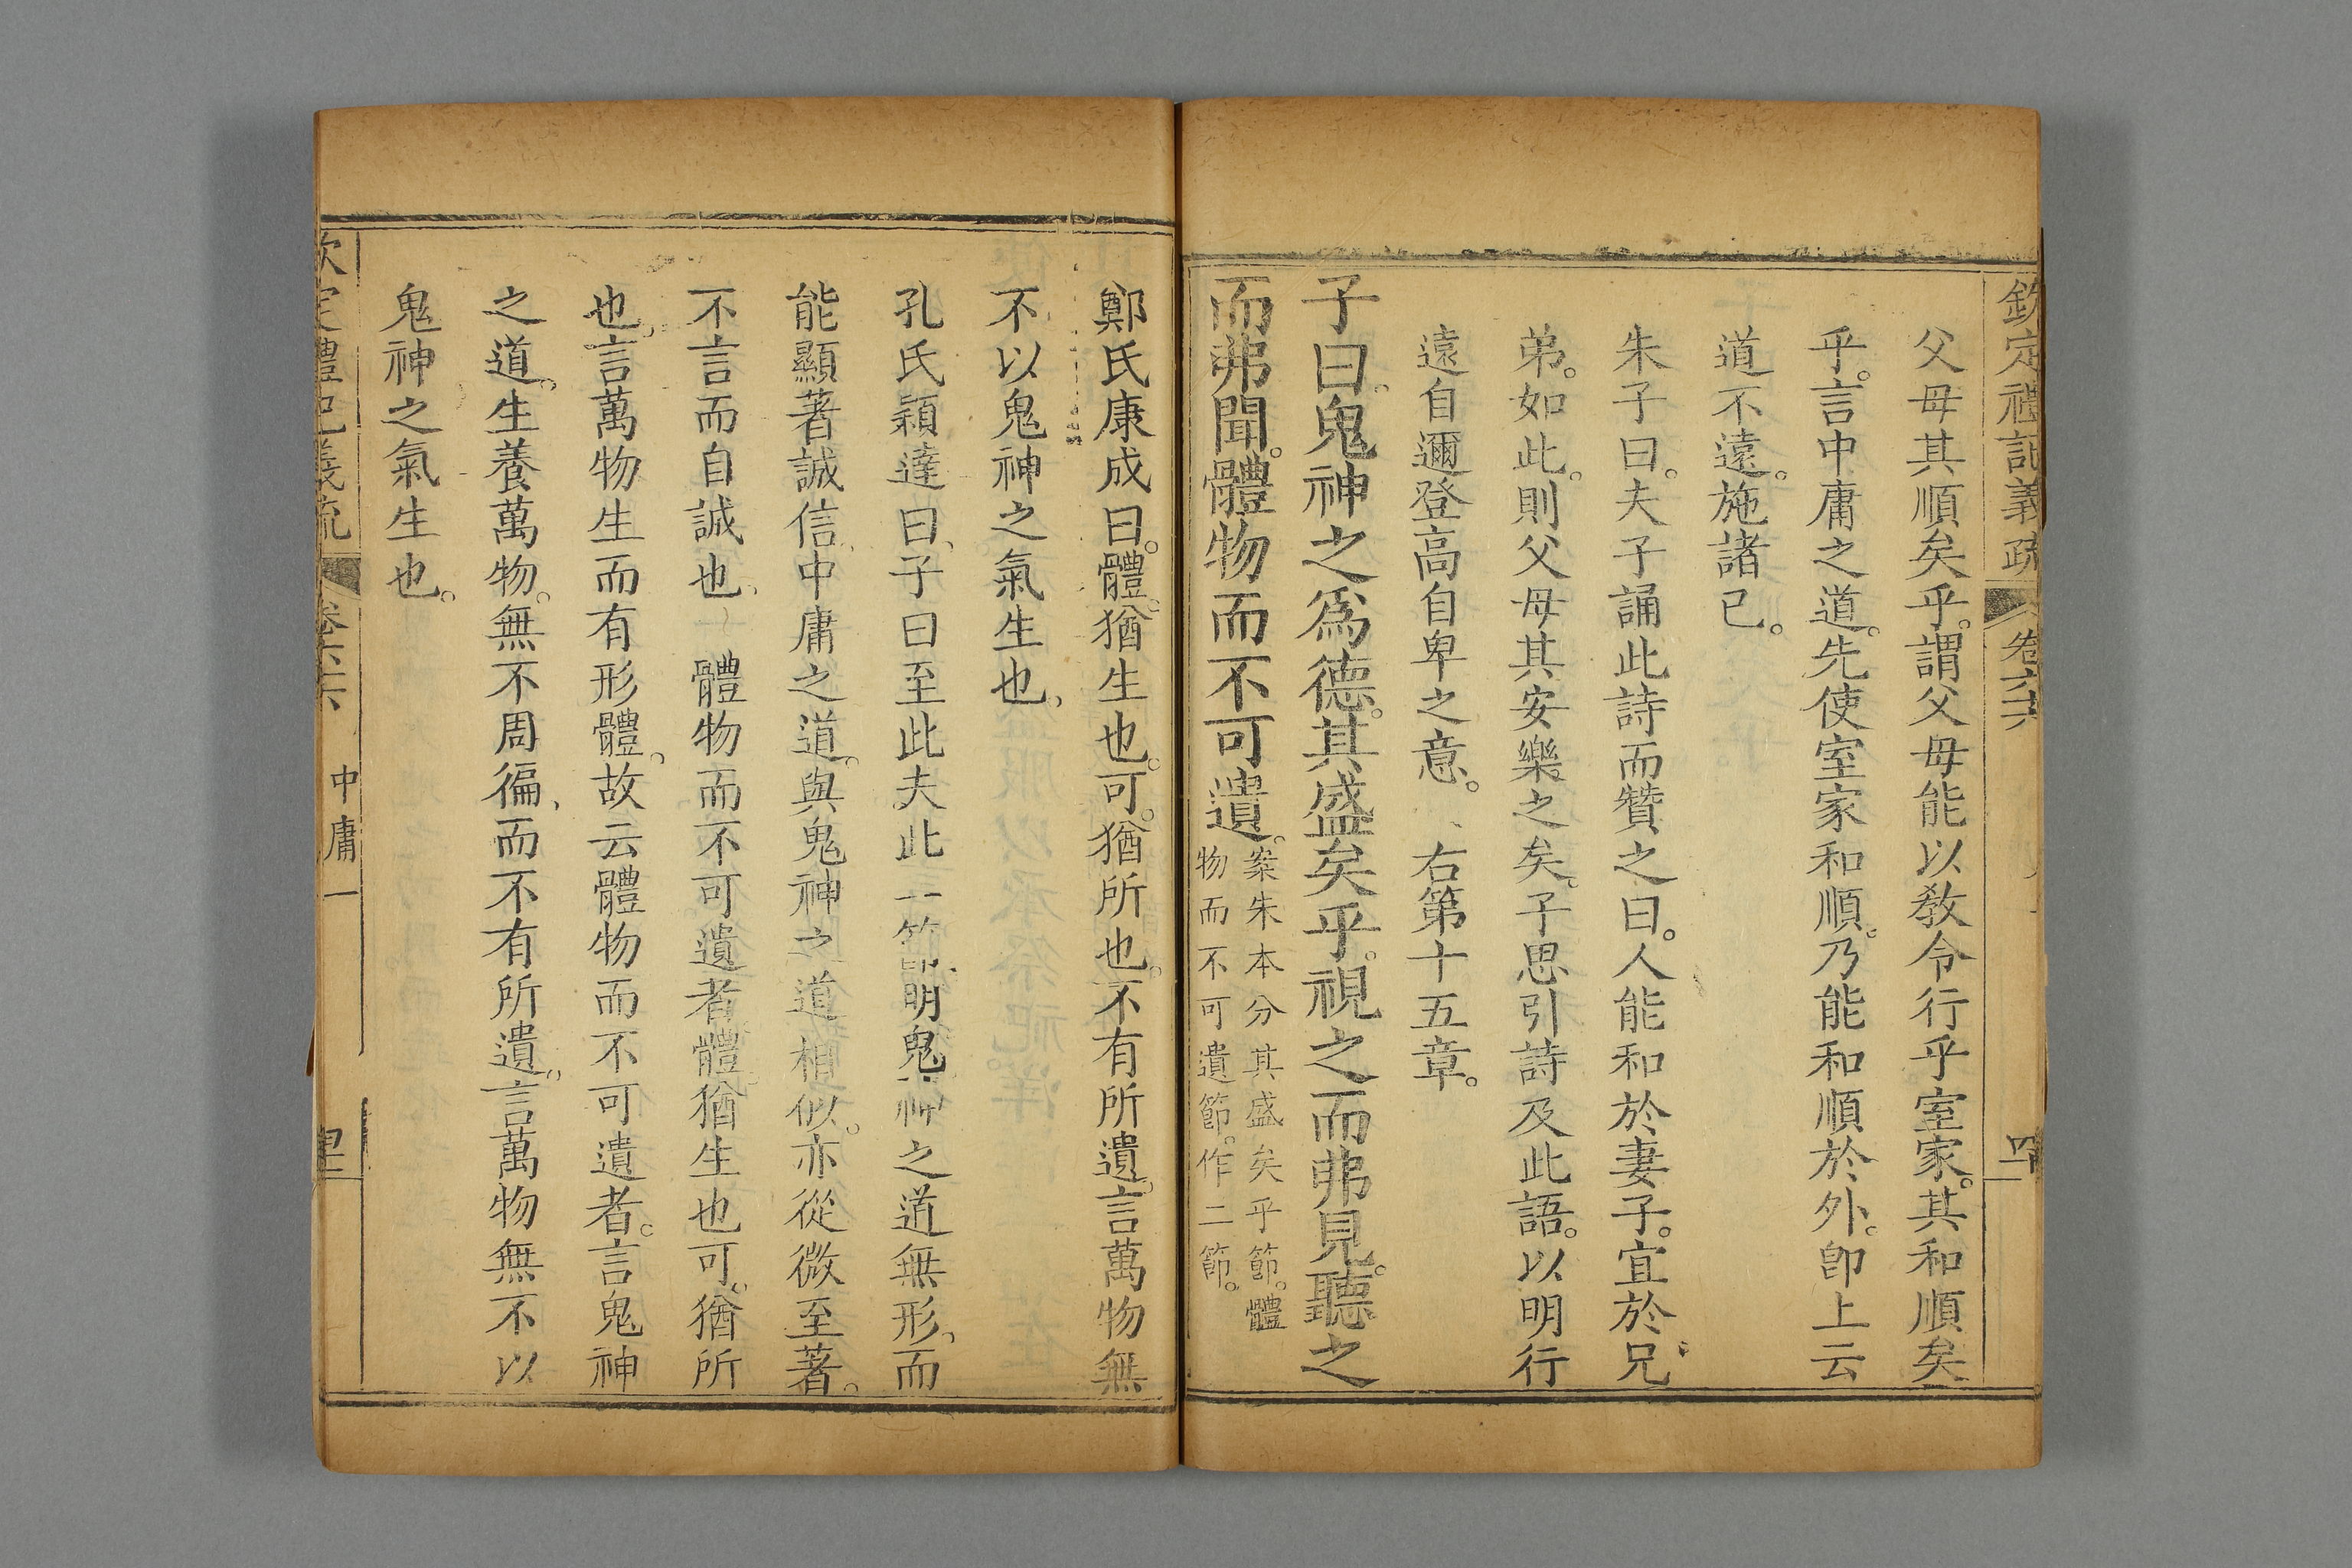 欽定禮記義疏 卷六十六
父母其順矣乎。謂父母能以敎令行乎室家。其和順矣
乎。言中庸之道。先使室家和順。乃能和順於外。卽上云
道不遠。施諸已。
朱子曰。夫子誦此詩而贊之曰。人能和於妻子。宜於兄
弟。如此。則父母其安樂之矣。子思引詩及此語。以明行
遠自邇登高自卑之意。 右第十五章。
子曰。鬼神之爲德。其盛矣乎。視之而弗見。聽之
而弗聞。體物而不可遺。
案朱本分其盛矣乎節。體
物而不可遺節。作二節。
鄭氏康成曰。體。猶生也。可。猶所也。不有所遺。言萬物無
不以鬼神之氣生也。
孔氏穎達曰。子曰至此夫此一節。明鬼神之道無形。而
能顯著誠信。中庸之道。與鬼神之道相似。亦從微至著。
不言而自誠也。 體物而不可遺者。體。猶生也。可。猶所
也。言萬物生而有形體。故云體物而不可遺者。言鬼神
之道。生養萬物。無不周徧。而不有所遺。言萬物無不以
鬼神之氣生也。
欽定禮記義疏 卷六十六 中庸一